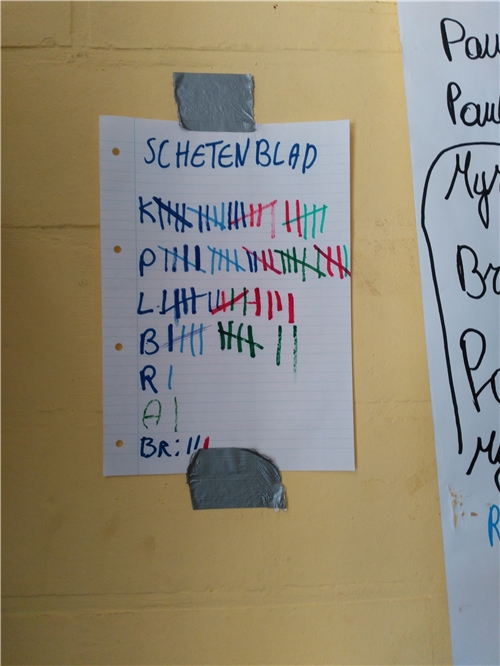 SCHETENBLAD
K
P
L
B
R
A
BR:
Pau
Paul
Myr
Br
Po
My
R